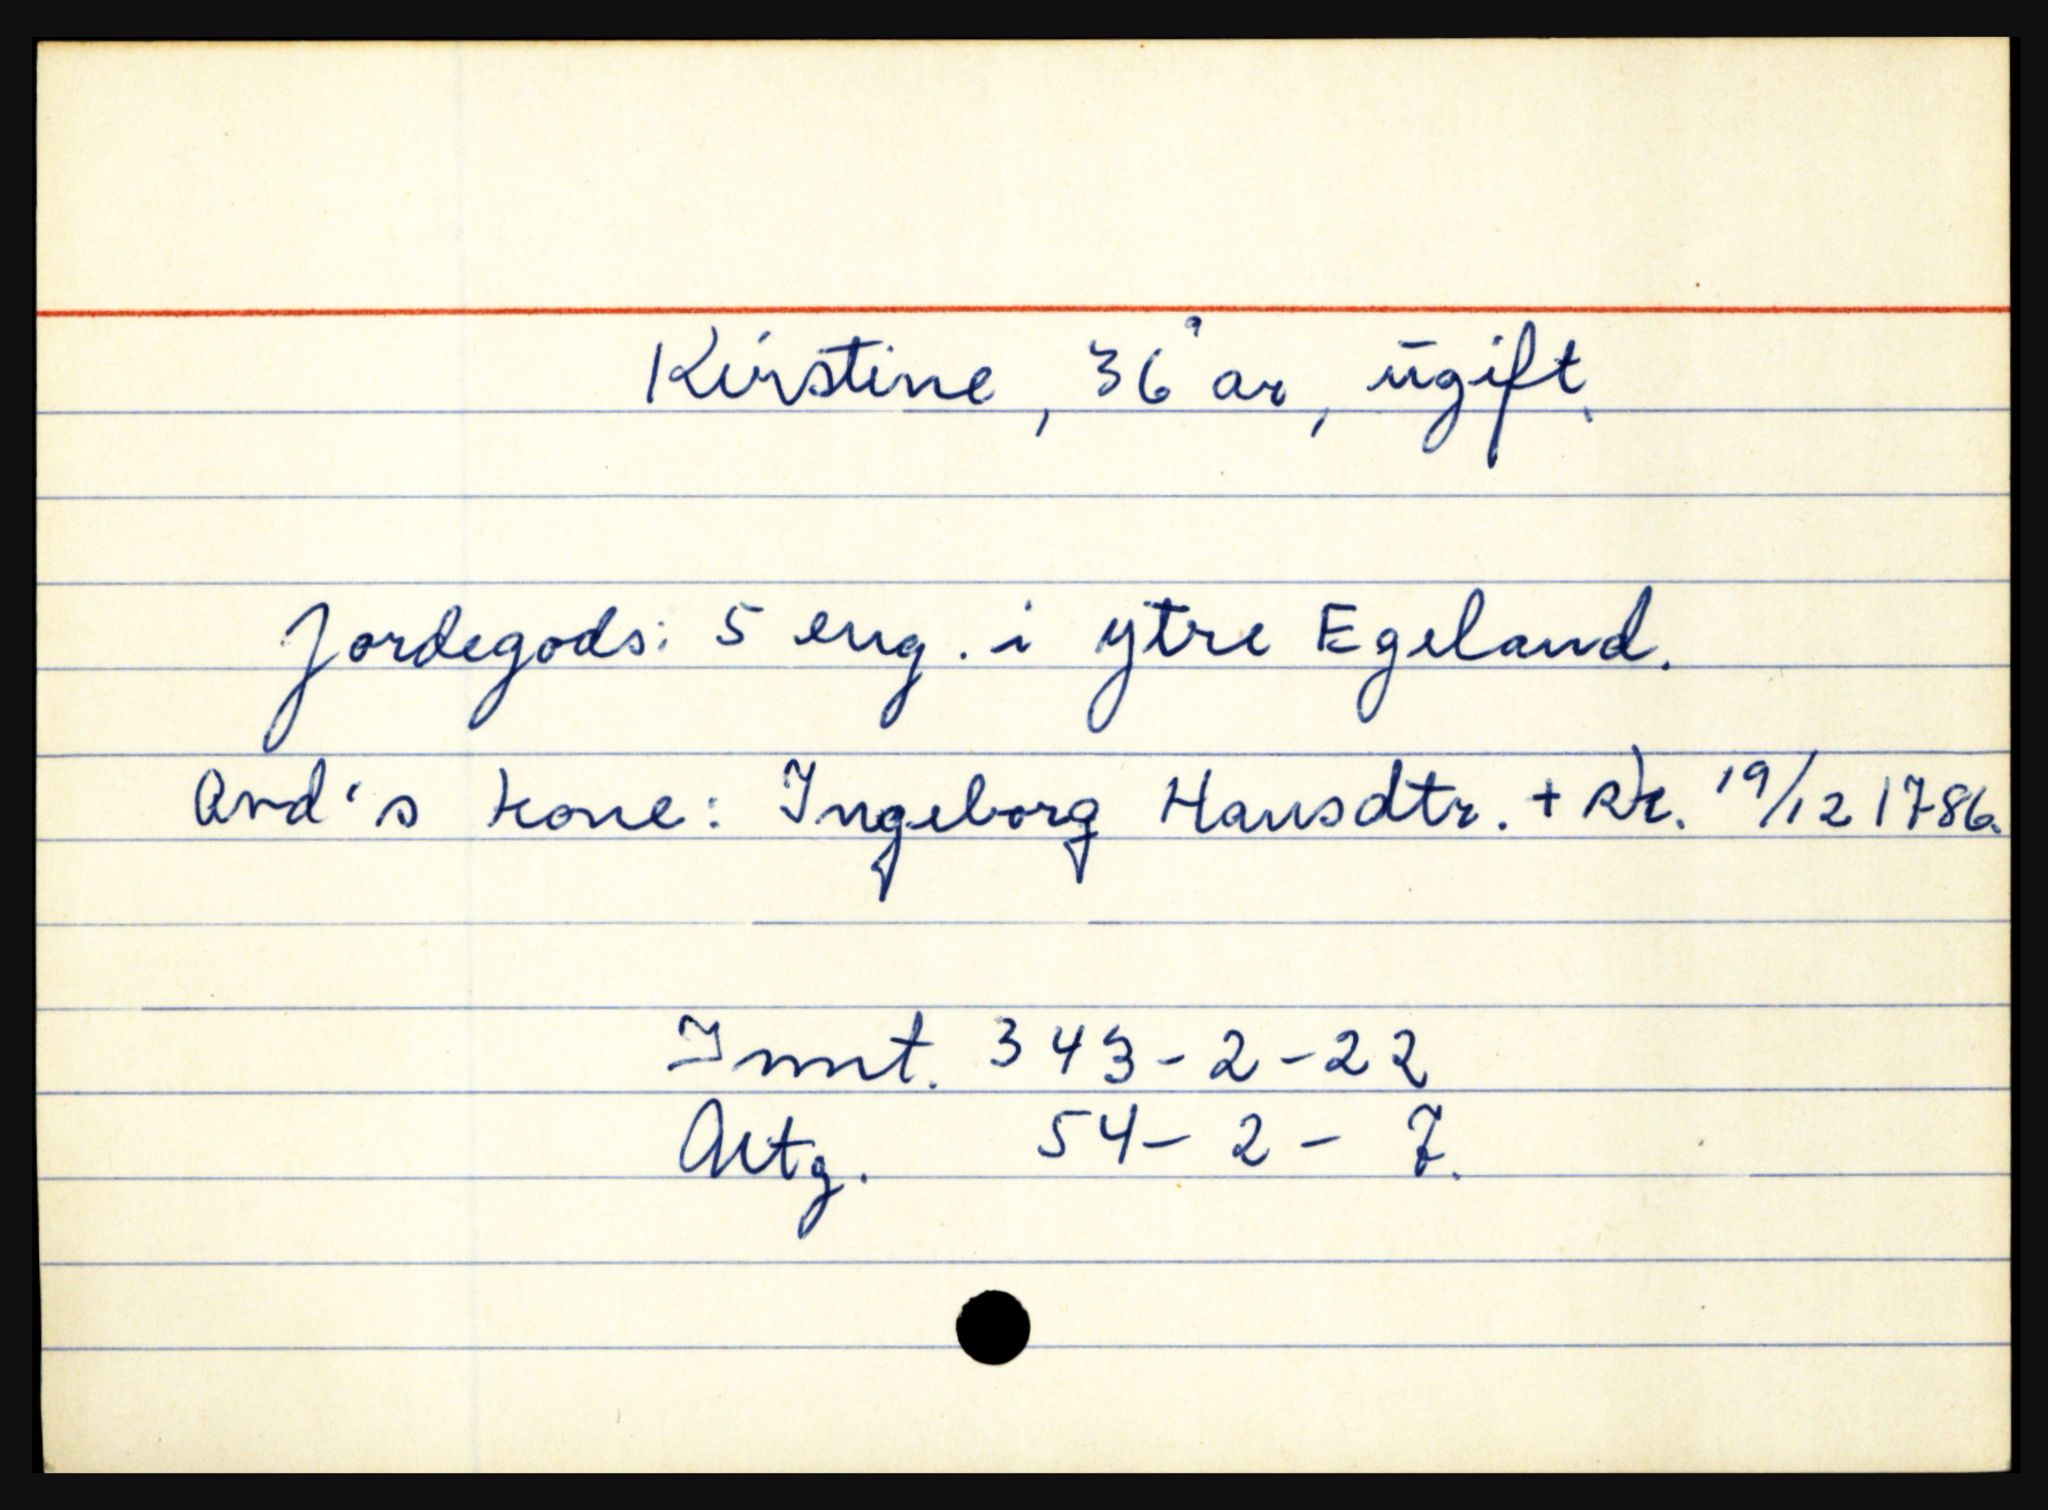 Kirstine, 36 år, ugift.
Jordegods: 5 eng. i ytre Egeland.
Avd's kone: Ingeborg Hansdtr. + 19/12 1786.
Innt. 343-2-22
Utg. 54-2-7.